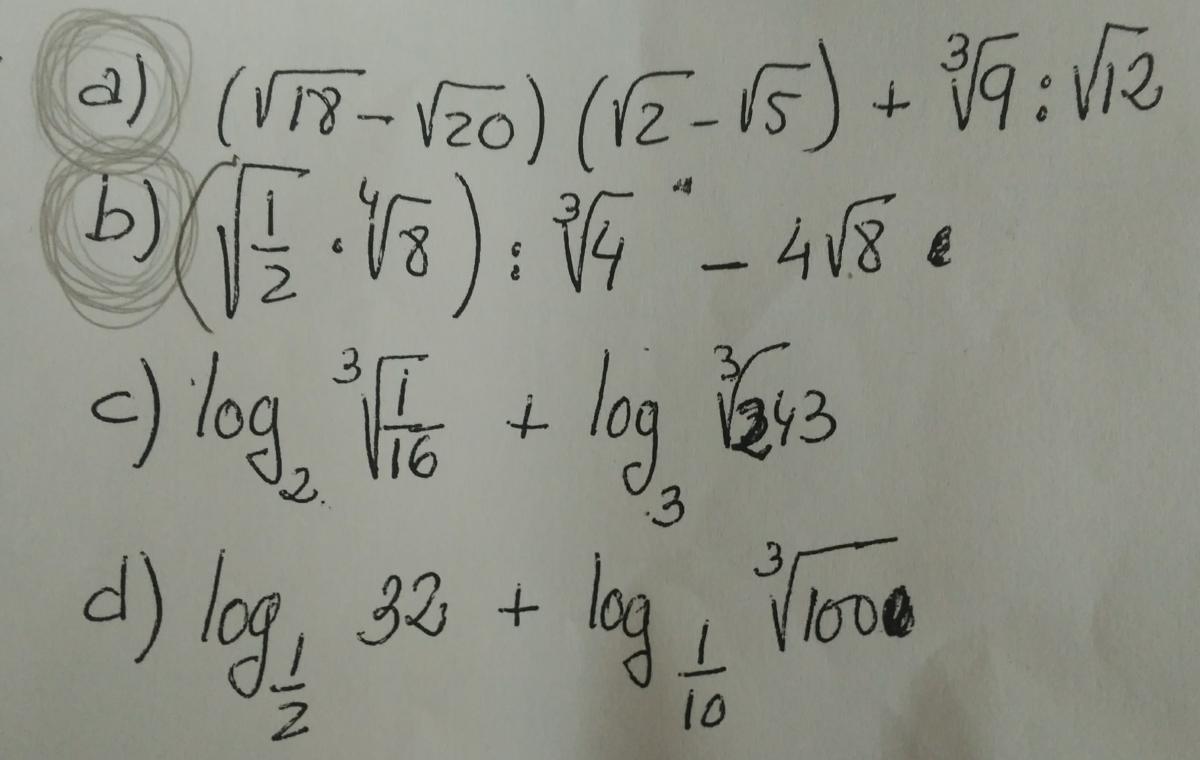 a) (√18 - √20) (√2 - √5) + ∛9 : √12
b) (√(1/2) · ∜8) : ∛4 - 4√8
c) log₂ ∛(1/16) + log₃ ∛243
d) log_(1/2) 32 + log_(1/10) ∛100